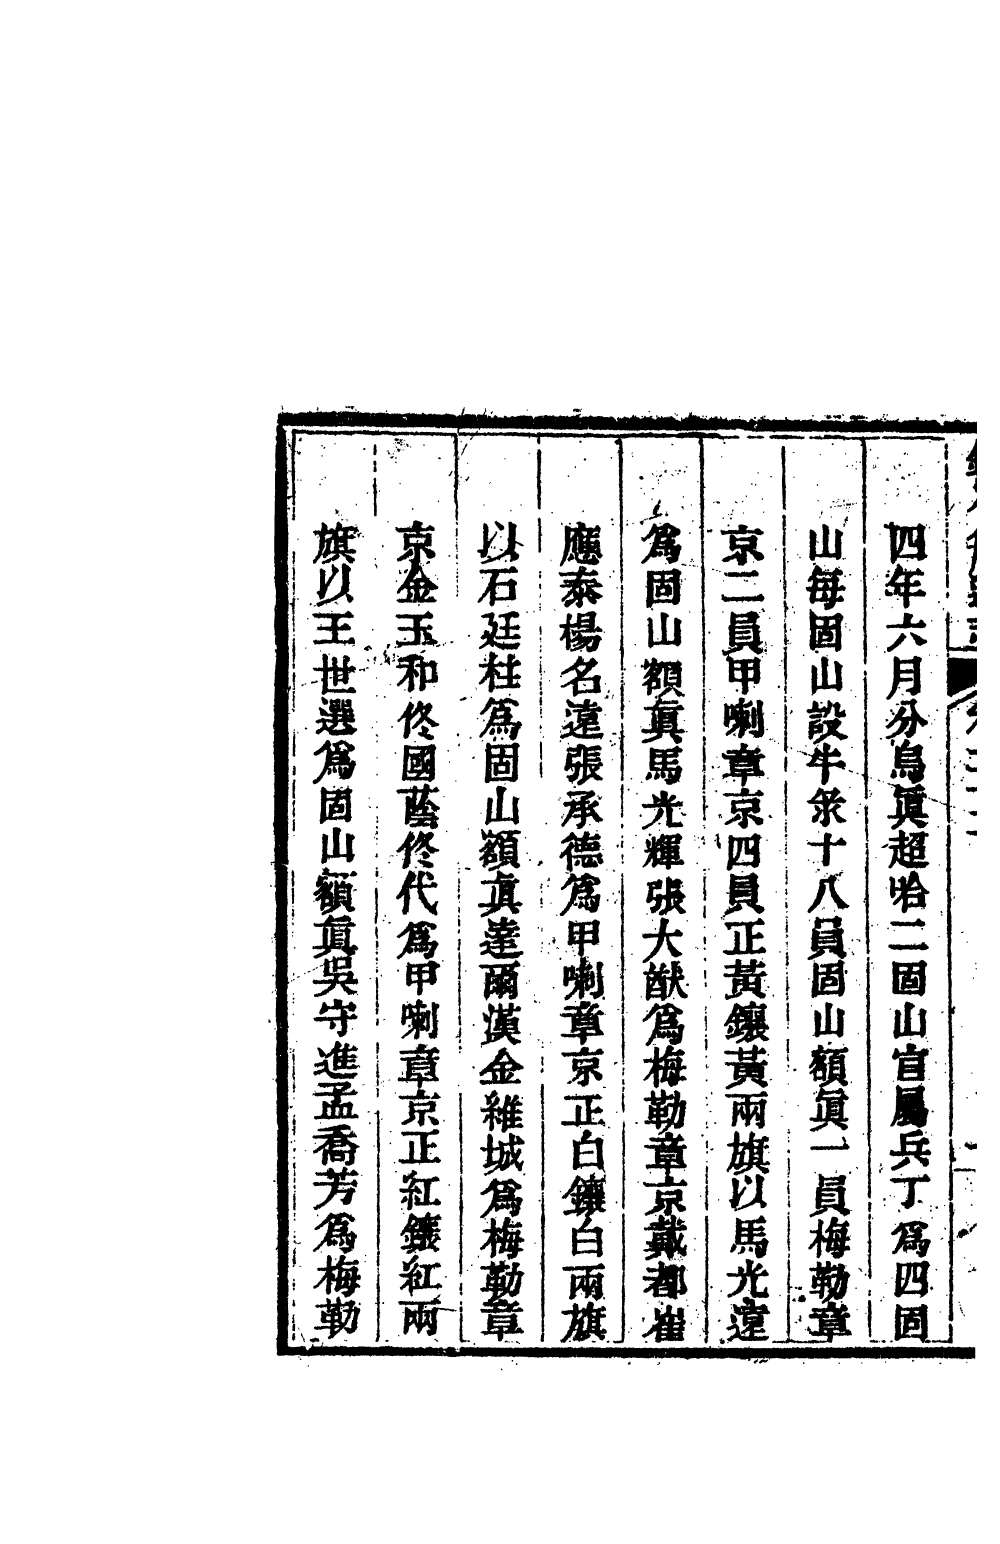 四年六月分烏眞超哈二固山官屬兵丁爲四固
山每固山設牛彔十八員固山額眞一員梅勒章
京二員甲喇章京四員正黃鑲黃兩旗以馬光遠
爲固山額眞馬光輝張大猷爲梅勒章京戴都崔
應泰楊名遠張承德爲甲喇章京正白鑲白兩旗
以石廷柱爲固山額眞達爾漢金維城爲梅勒章
京金玉和佟國蔭佟代爲甲喇章京正紅鑲紅兩
旗以王世選爲固山額眞吳守進孟喬芳爲梅勒